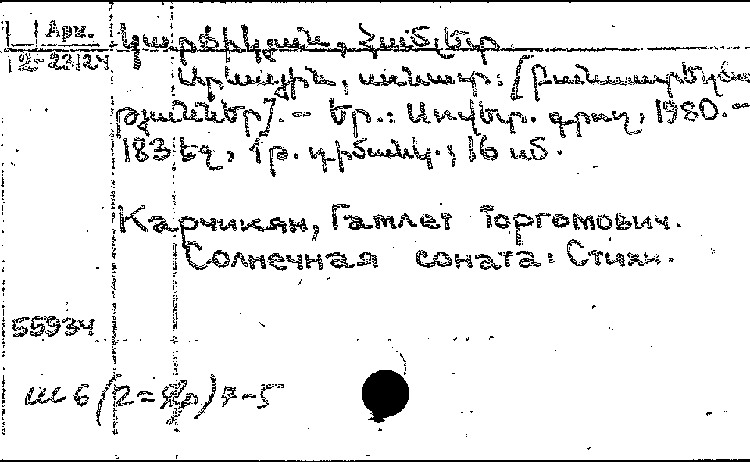 Арм. Կարճիկյան, Համլետ
12-23124 Արևային սոնատ: [Բանաստեղծու
թյուններ].- Եր.: Սովետ. գրող, 1980.-
183 էջ, 1 թ. դիմանկ.; 16 սմ.
Карчикян, Гамлет Торгомович.
Солнечная соната: Стихи.
55934
Ш6(2=Ар)7-5